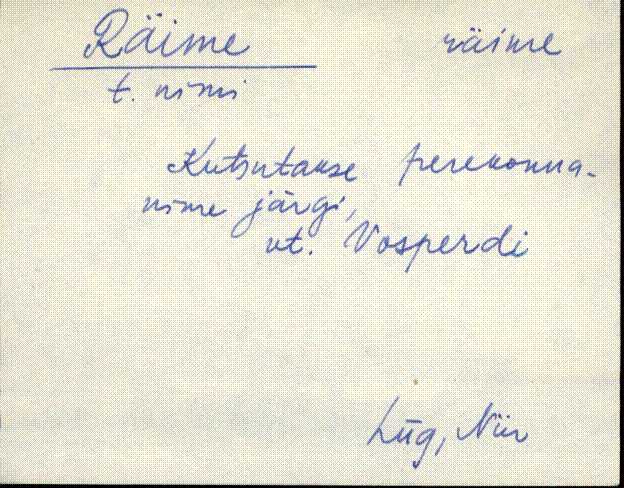 Räime räime
t. nimi
Kutsutakse perekonna-
nime järgi,
vt. Vosperdi
Lüg, Niir